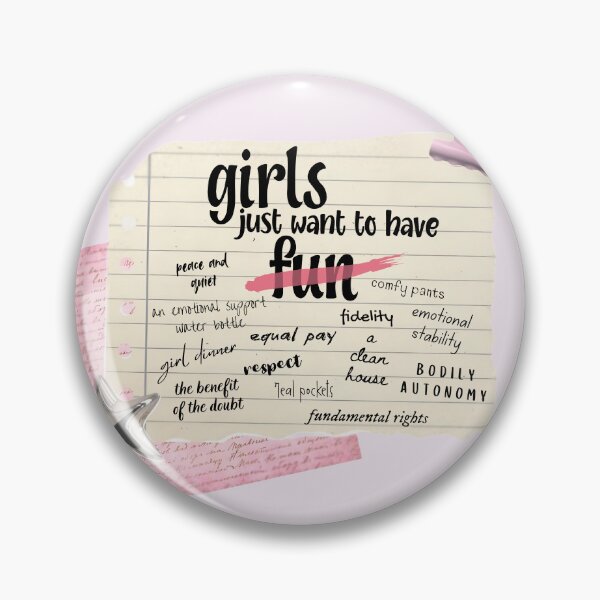 girls
just want to have
fun
peace and
quiet
comfy pants
an emotional support
water bottle
fidelity
emotional
stability
equal pay
a
clean
house
girl dinner
respect
BODILY
AUTONOMY
the benefit
of the doubt
real pockets
fundamental rights